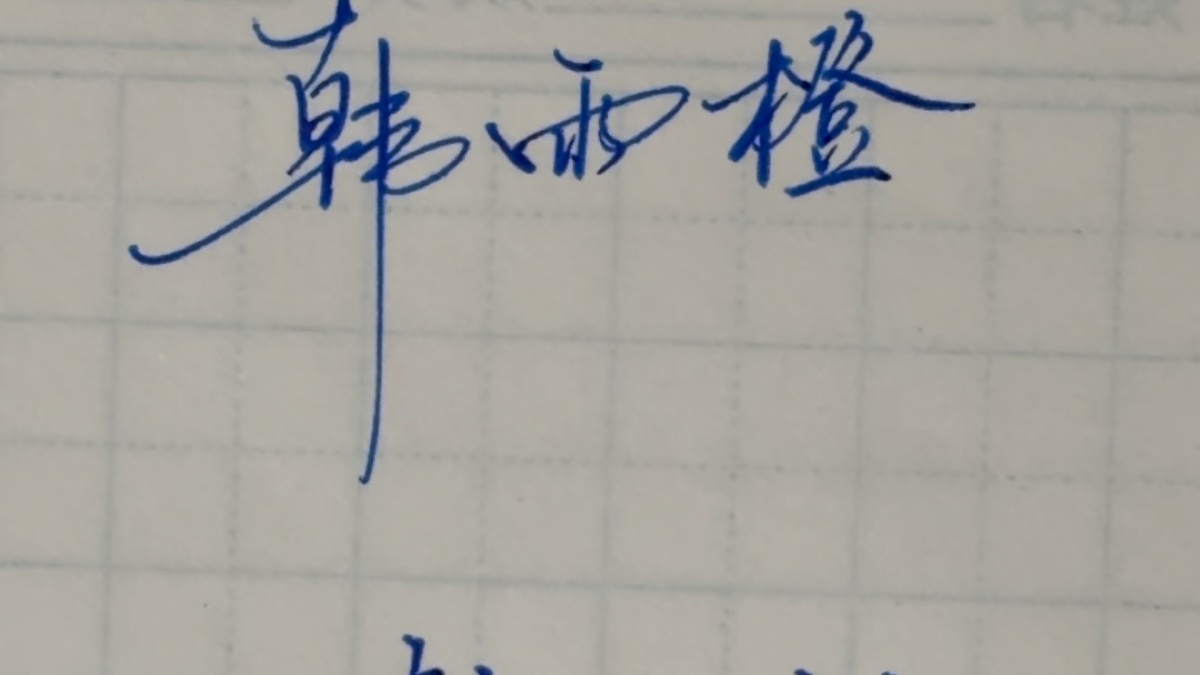 韩雨橙